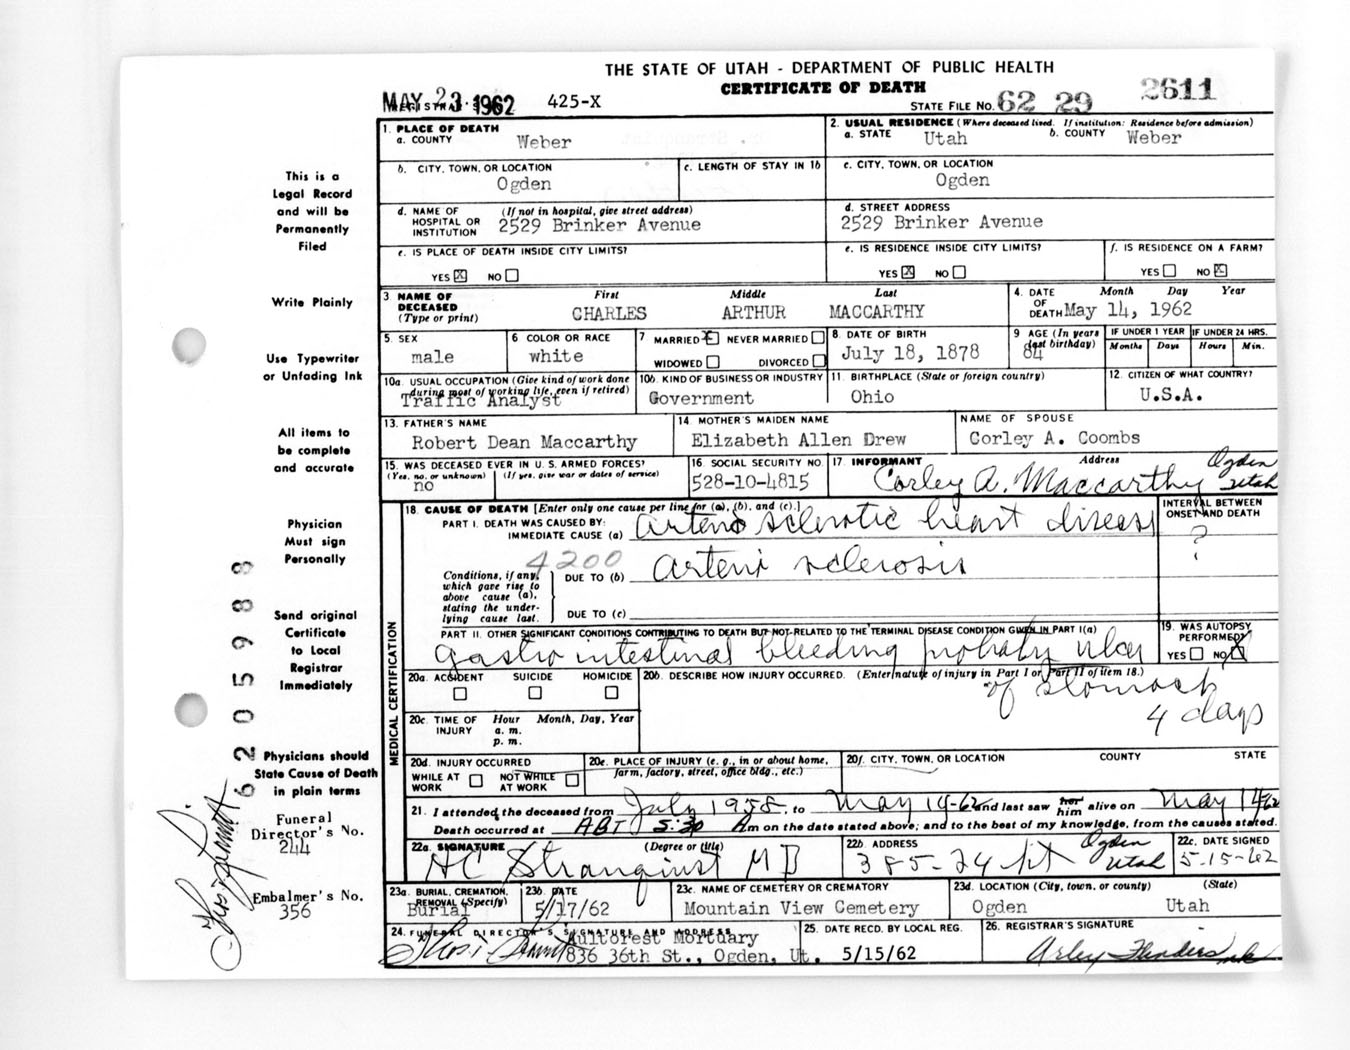 THE STATE OF UTAH - DEPARTMENT OF PUBLIC HEALTH
CERTIFICATE OF DEATH
MAY 23 1962 425-X STATE FILE NO. 62 29 2611
1. PLACE OF DEATH
a. COUNTY Weber
2. USUAL RESIDENCE (Where deceased lived. If institution: Residence before admission)
a. STATE Utah b. COUNTY Weber
b. CITY, TOWN, OR LOCATION Ogden
c. LENGTH OF STAY IN 1b
c. CITY, TOWN, OR LOCATION Ogden
d. NAME OF HOSPITAL OR INSTITUTION (If not in hospital, give street address) 2529 Brinker Avenue
d. STREET ADDRESS 2529 Brinker Avenue
e. IS PLACE OF DEATH INSIDE CITY LIMITS?
YES X NO
e. IS RESIDENCE INSIDE CITY LIMITS?
YES X NO
f. IS RESIDENCE ON A FARM?
YES NO X
3. NAME OF DECEASED (Type or print)
First Middle Last
CHARLES ARTHUR MACCARTHY
4. DATE OF DEATH Month Day Year
May 14, 1962
5. SEX male
6 COLOR OR RACE white
7 MARRIED X NEVER MARRIED
WIDOWED DIVORCED
8. DATE OF BIRTH July 18, 1878
9 AGE (In years last birthday) 84
IF UNDER 1 YEAR Months Days
IF UNDER 24 HRS. Hours Min.
10a. USUAL OCCUPATION (Give kind of work done during most of working life, even if retired) Traffic Analyst
10b. KIND OF BUSINESS OR INDUSTRY Government
11. BIRTHPLACE (State or foreign country) Ohio
12. CITIZEN OF WHAT COUNTRY? U.S.A.
13. FATHER'S NAME Robert Dean Maccarthy
14. MOTHER'S MAIDEN NAME Elizabeth Allen Drew
NAME OF SPOUSE Corley A. Coombs
15. WAS DECEASED EVER IN U. S. ARMED FORCES?
(Yes, no, or unknown) (If yes, give war or dates of service)
no
16. SOCIAL SECURITY NO. 528-10-4815
17. INFORMANT Address
Corley A. Maccarthy Ogden Utah
18. CAUSE OF DEATH [Enter only one cause per line for (a), (b), and (c).]
INTERVAL BETWEEN ONSET AND DEATH
PART I. DEATH WAS CAUSED BY:
IMMEDIATE CAUSE (a) Arterio sclerotic heart disease ?
4200
Conditions, if any, which gave rise to above cause (a), stating the underlying cause last.
DUE TO (b) Arterio sclerosis
DUE TO (c)
PART II. OTHER SIGNIFICANT CONDITIONS CONTRIBUTING TO DEATH BUT NOT RELATED TO THE TERMINAL DISEASE CONDITION GIVEN IN PART I(a)
gastro intestinal bleeding probably ulcer
of stomach
4 days
19. WAS AUTOPSY PERFORMED?
YES NO X
20a. ACCIDENT SUICIDE HOMICIDE
20b. DESCRIBE HOW INJURY OCCURRED. (Enter nature of injury in Part I or Part II of item 18.)
20c. TIME OF INJURY Hour Month, Day, Year
a. m.
p. m.
20d. INJURY OCCURRED
WHILE AT WORK NOT WHILE AT WORK
20e. PLACE OF INJURY (e. g., in or about home, farm, factory, street, office bldg., etc.)
20f. CITY, TOWN, OR LOCATION COUNTY STATE
21. I attended the deceased from July 1958, to May 14-62 and last saw her him alive on May 14 62
Death occurred at ABT 5:30 A m on the date stated above; and to the best of my knowledge, from the causes stated.
22a. SIGNATURE (Degree or title)
HC Stranquist MD
22b. ADDRESS 385-24 St Ogden Utah
22c. DATE SIGNED 5-15-62
23a. BURIAL, CREMATION, REMOVAL (Specify) Burial
23b. DATE 5/17/62
23c. NAME OF CEMETERY OR CREMATORY Mountain View Cemetery
23d. LOCATION (City, town, or county) (State)
Ogden Utah
24. FUNERAL DIRECTOR'S SIGNATURE AND ADDRESS
Aultorest Mortuary
836 36th St., Ogden, Ut.
25. DATE RECD. BY LOCAL REG. 5/15/62
26. REGISTRAR'S SIGNATURE
MEDICAL CERTIFICATION
This is a
Legal Record
and will be
Permanently
Filed
Write Plainly
Use Typewriter
or Unfading Ink
All items to
be complete
and accurate
Physician
Must sign
Personally
Send original
Certificate
to Local
Registrar
Immediately
Physicians should
State Cause of Death
in plain terms
Funeral
Director's No.
244
Embalmer's No.
356
62 05988